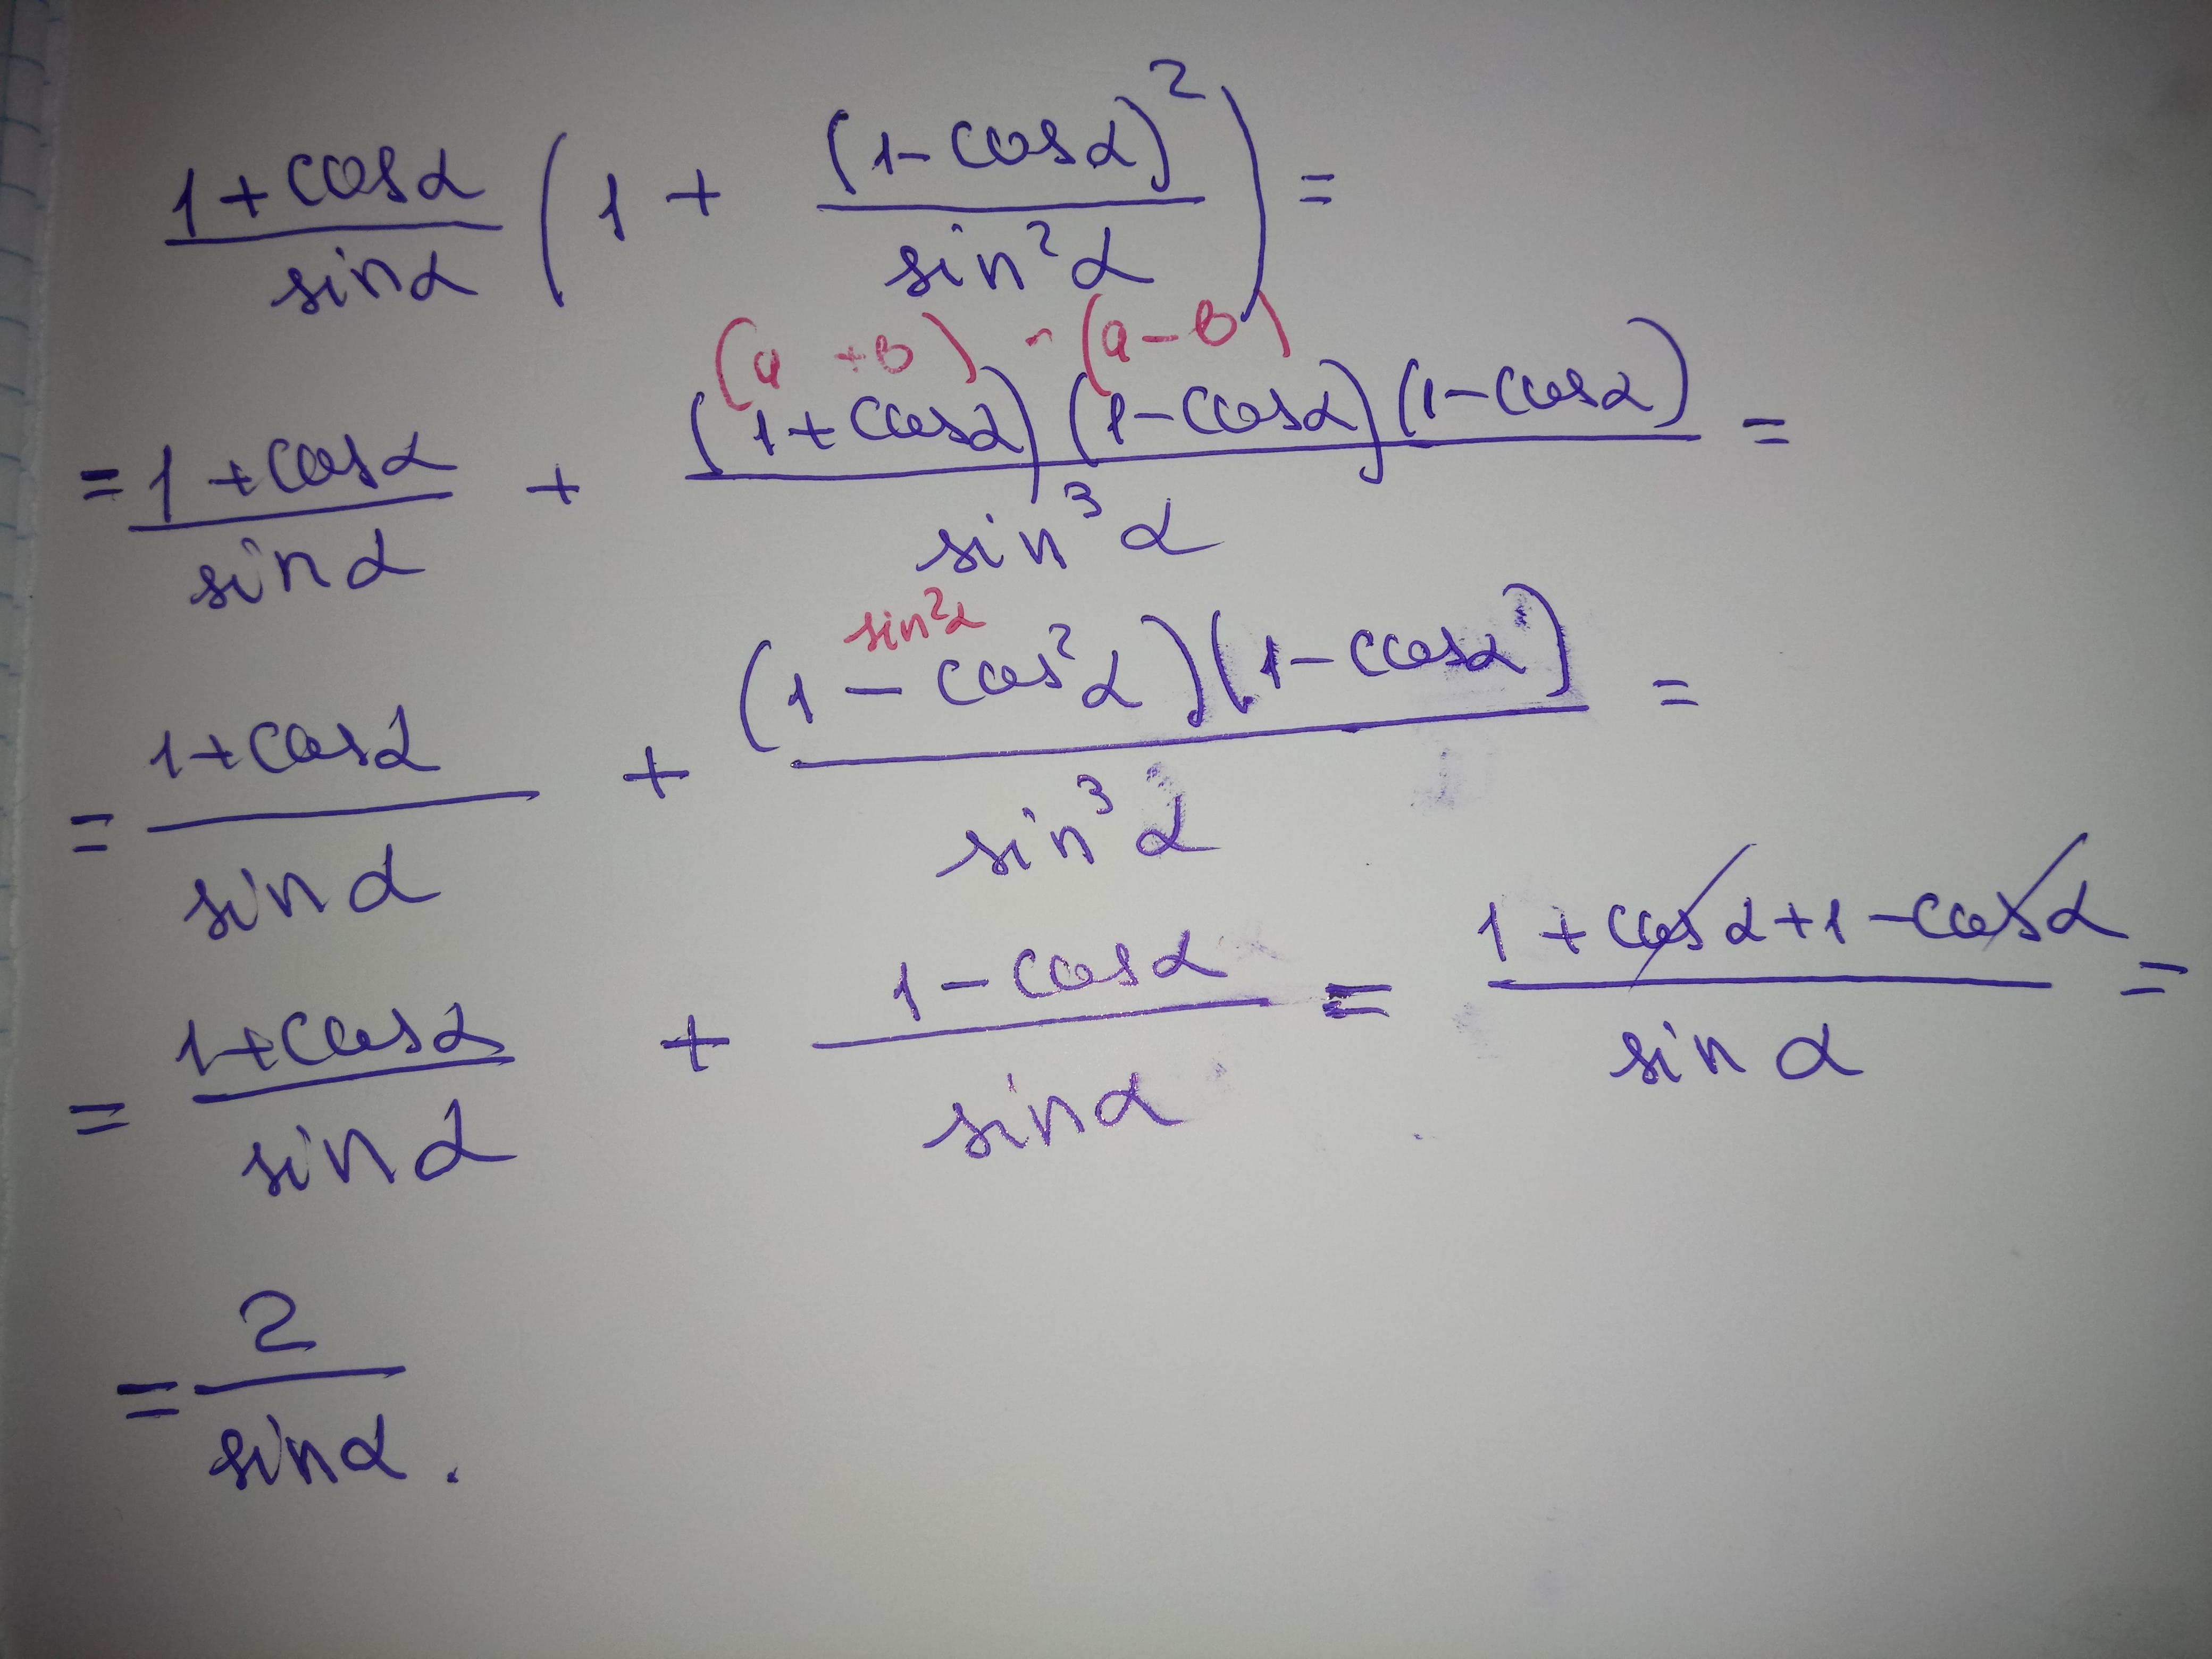 (1+cosα)/(sinα) (1 + (1-cosα)²/(sin²α)) =
(a + b) · (a - b)
= (1+cosα)/(sinα) + ((1+cosα)(1-cosα)(1-cosα))/(sin³α) =
sin²α
= (1+cosα)/(sinα) + ((1-cos²α)(1-cosα))/(sin³α) =
= (1+cosα)/(sinα) + (1-cosα)/(sinα) = (1+cosα+1-cosα)/(sinα) =
= 2/(sinα).